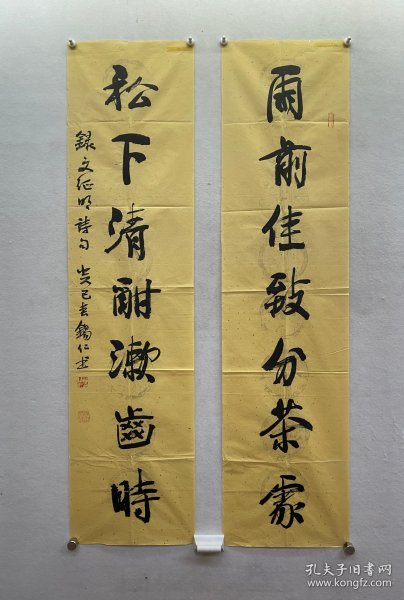 雨前佳致分茶處
松下清酣漱齒時
錄文征明詩句 癸巳 錫仁書
孔夫子旧书网
www.kongfz.com